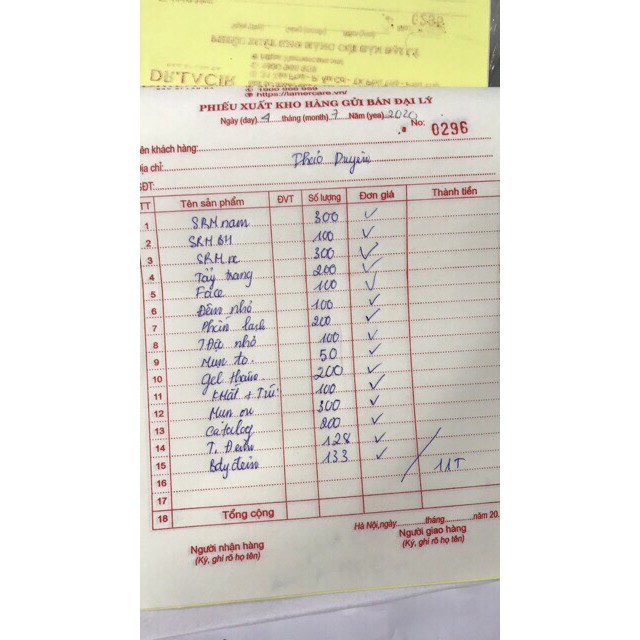 DR.LACIR
1900 966 959
https://lamercare.vn/
PHIẾU XUẤT KHO HÀNG GỬI BÁN ĐẠI LÝ
Ngày (day) 4 tháng (month) 7 Năm (yea) 2020
No: 0296
ên khách hàng:
ịa chỉ: Thảo Duyên
SĐT:
TT Tên sản phẩm ĐVT Số lượng Đơn giá Thành tiền
1 SRM nam 300 ✓
2 SRM BH 100 ✓
3 SRM re 300 ✓
4 Tẩy trang 200 ✓
5 Face 100 ✓
6 Đêm nhỏ 100 ✓
7 Phấn lạnh 200 ✓
8 nhỏ 100 ✓
9 Mụn to 50 ✓
10 gel 200 ✓
11 100 ✓
12 Mụn 300 ✓
13 Catalog 200 ✓
14 T. 128 ✓
15 Bdy đêm 133 ✓
16 11T
17
18 Tổng cộng
Hà Nội,ngày tháng năm 20
Người nhận hàng Người giao hàng
(Ký, ghi rõ họ tên) (Ký, ghi rõ họ tên)